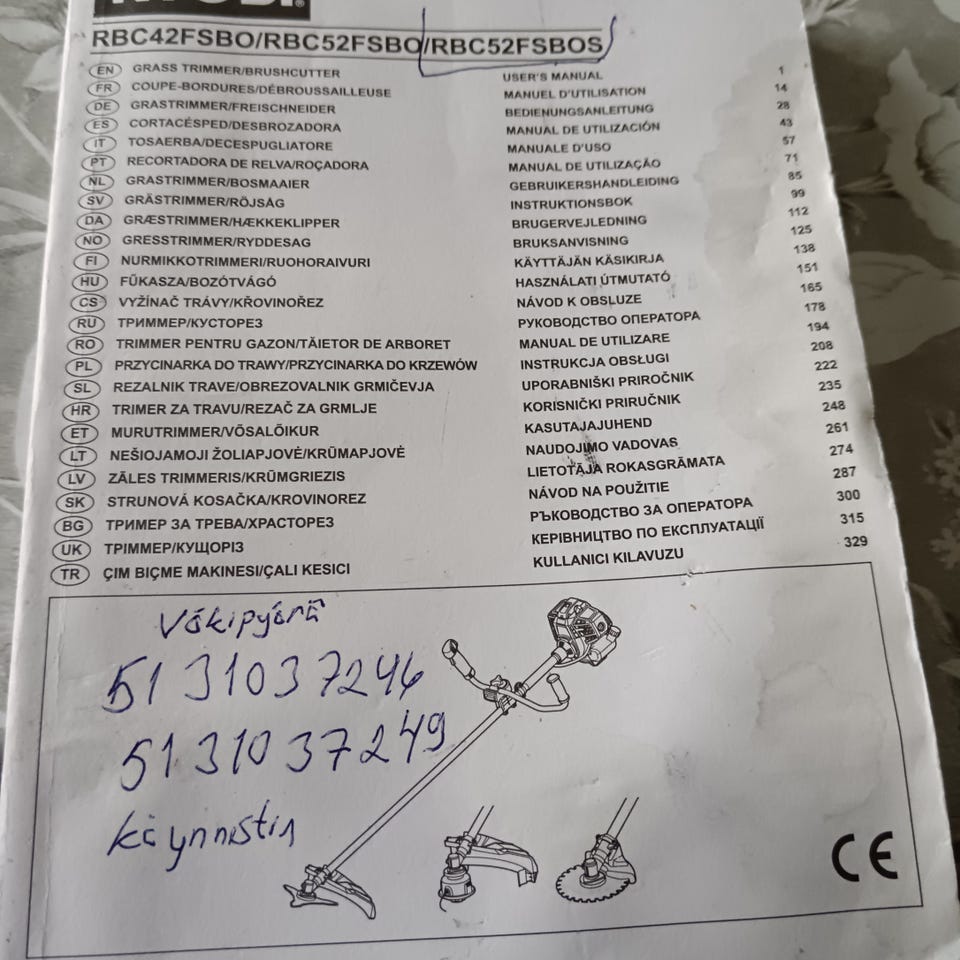 RYOBI®
RBC42FSBO/RBC52FSBO/RBC52FSBOS
EN GRASS TRIMMER/BRUSHCUTTER USER'S MANUAL 1
FR COUPE-BORDURES/DÉBROUSSAILLEUSE MANUEL D'UTILISATION 14
DE GRASTRIMMER/FREISCHNEIDER BEDIENUNGSANLEITUNG 28
ES CORTACÉSPED/DESBROZADORA MANUAL DE UTILIZACIÓN 43
IT TOSAERBA/DECESPUGLIATORE MANUALE D'USO 57
PT RECORTADORA DE RELVA/ROÇADORA MANUAL DE UTILIZAÇÃO 71
NL GRASTRIMMER/BOSMAAIER GEBRUIKERSHANDLEIDING 85
SV GRÄSTRIMMER/RÖJSÅG INSTRUKTIONSBOK 99
DA GRÆSTRIMMER/HÆKKEKLIPPER BRUGERVEJLEDNING 112
NO GRESSTRIMMER/RYDDESAG BRUKSANVISNING 125
FI NURMIKKOTRIMMERI/RUOHORAIVURI KÄYTTÄJÄN KÄSIKIRJA 138
HU FŰKASZA/BOZÓTVÁGÓ HASZNÁLATI ÚTMUTATÓ 151
CS VYŽÍNAČ TRÁVY/KŘOVINOŘEZ NÁVOD K OBSLUZE 165
RU ТРИММЕР/КУСТОРЕЗ РУКОВОДСТВО ОПЕРАТОРА 178
RO TRIMMER PENTRU GAZON/TĂIETOR DE ARBORET MANUAL DE UTILIZARE 194
PL PRZYCINARKA DO TRAWY/PRZYCINARKA DO KRZEWÓW INSTRUKCJA OBSŁUGI 208
SL REZALNIK TRAVE/OBREZOVALNIK GRMIČEVJA UPORABNIŠKI PRIROČNIK 222
HR TRIMER ZA TRAVU/REZAČ ZA GRMLJE KORISNIČKI PRIRUČNIK 235
ET MURUTRIMMER/VÕSALÕIKUR KASUTAJAJUHEND 248
LT NEŠIOJAMOJI ŽOLIAPJOVĖ/KRŪMAPJOVĖ NAUDOJIMO VADOVAS 261
LV ZĀLES TRIMMERIS/KRŪMGRIEZIS LIETOTĀJA ROKASGRĀMATA 274
SK STRUNOVÁ KOSAČKA/KROVINOREZ NÁVOD NA POUŽITIE 287
BG ТРИМЕР ЗА ТРЕВА/ХРАСТОРЕЗ РЪКОВОДСТВО ЗА ОПЕРАТОРА 300
UK ТРІММЕР/КУЩОРІЗ КЕРІВНИЦТВО ПО ЕКСПЛУАТАЦІЇ 315
TR ÇIM BIÇME MAKINESI/ÇALI KESICI KULLANICI KILAVUZU 329
Väkipyörä
5131037246
5131037249
käynnistin
CE